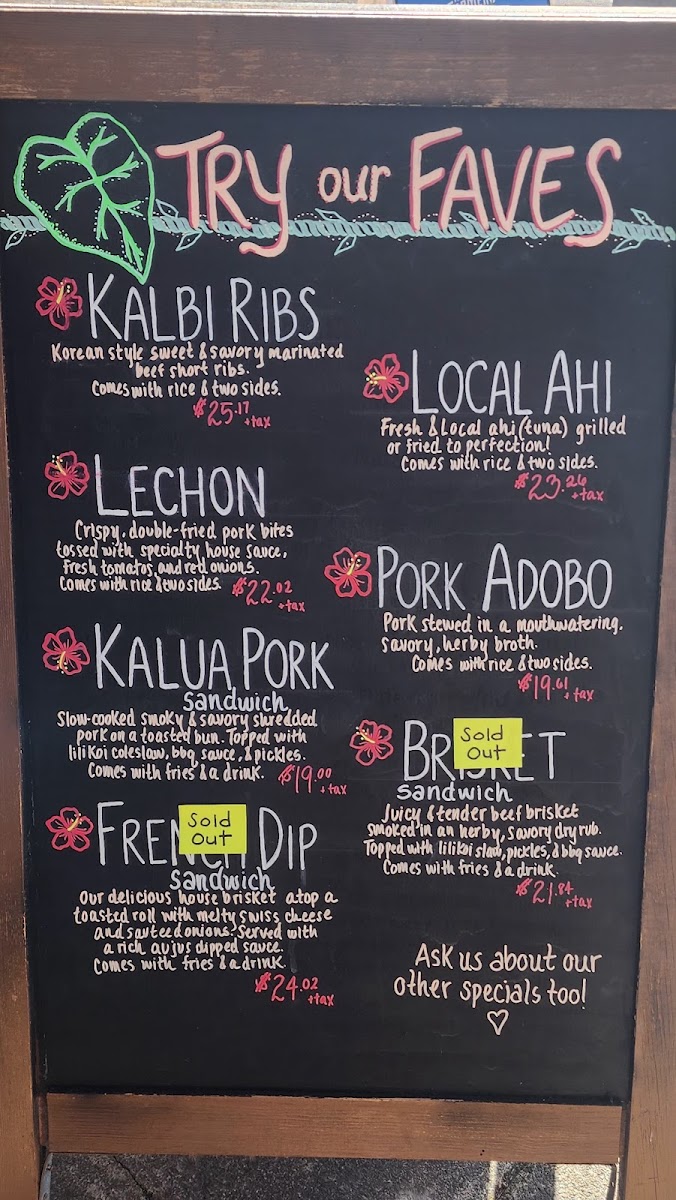 TRY our FAVES
KALBI RIBS
Korean style sweet & savory marinated
beef short ribs.
Comes with rice & two sides.
$25.17 +tax
LECHON
Crispy, double-fried pork bites
tossed with specialty house sauce,
fresh tomatos, and red onions.
Comes with rice & two sides. $22.02
+tax
KALUA PORK
sandwich
Slow-cooked smoky & savory shredded
pork on a toasted bun. Topped with
lilikoi coleslaw, bbq sauce, & pickles.
Comes with fries & a drink. $19.00
+tax
FRENCH DIP
Sold
Out
sandwich
Our delicious house brisket atop a
toasted roll with melty swiss cheese
and sauteed onions. Served with
a rich aujus dipped sauce.
Comes with fries & a drink.
$24.02
+tax
LOCAL AHI
Fresh & Local ahi (tuna) grilled
or fried to perfection!
Comes with rice & two sides.
$23.26
+tax
PORK ADOBO
Pork stewed in a mouthwatering.
savory, herby broth.
Comes with rice & two sides.
$19.61 +tax
BRISKET
Sold
Out
sandwich
Juicy & tender beef brisket
smoked in an herby, savory dry rub.
Topped with lilikoi slaw, pickles, & bbq sauce.
Comes with fries & a drink.
$21.84
+tax
Ask us about our
other specials too!